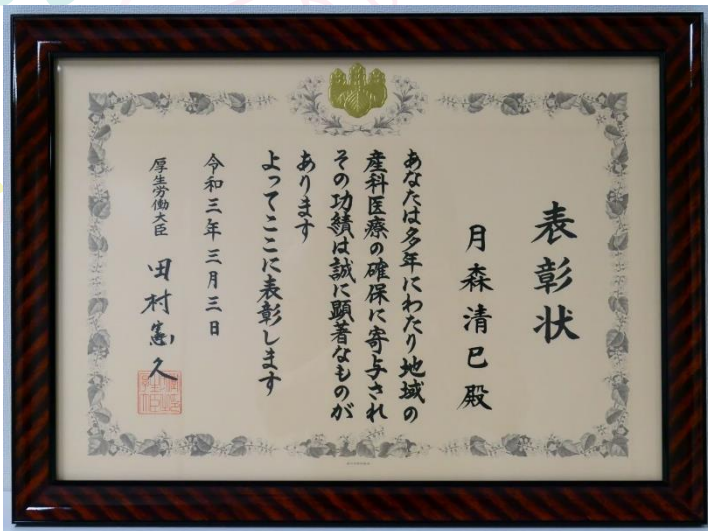 表彰状
月森清巳殿
あなたは多年にわたり地域の
産科医療の確保に寄与され
その功績は誠に顕著なものが
あります
よってここに表彰します
令和三年三月三日
厚生労働大臣 田村憲久